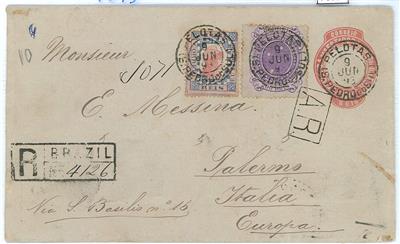 10
Monsieur
1071
PELOTAS
9
JUN
S. PEDRO DO SUL
REIS
PELOTAS
9
JUN
S. PEDRO DO SUL
CORREIO
PELOTAS
9
JUN
93
S. PEDRO DO SUL
E. Messina
AR
R BRAZIL
No 4126
Palermo
Italia
Via S. Basilio no 16
Europa